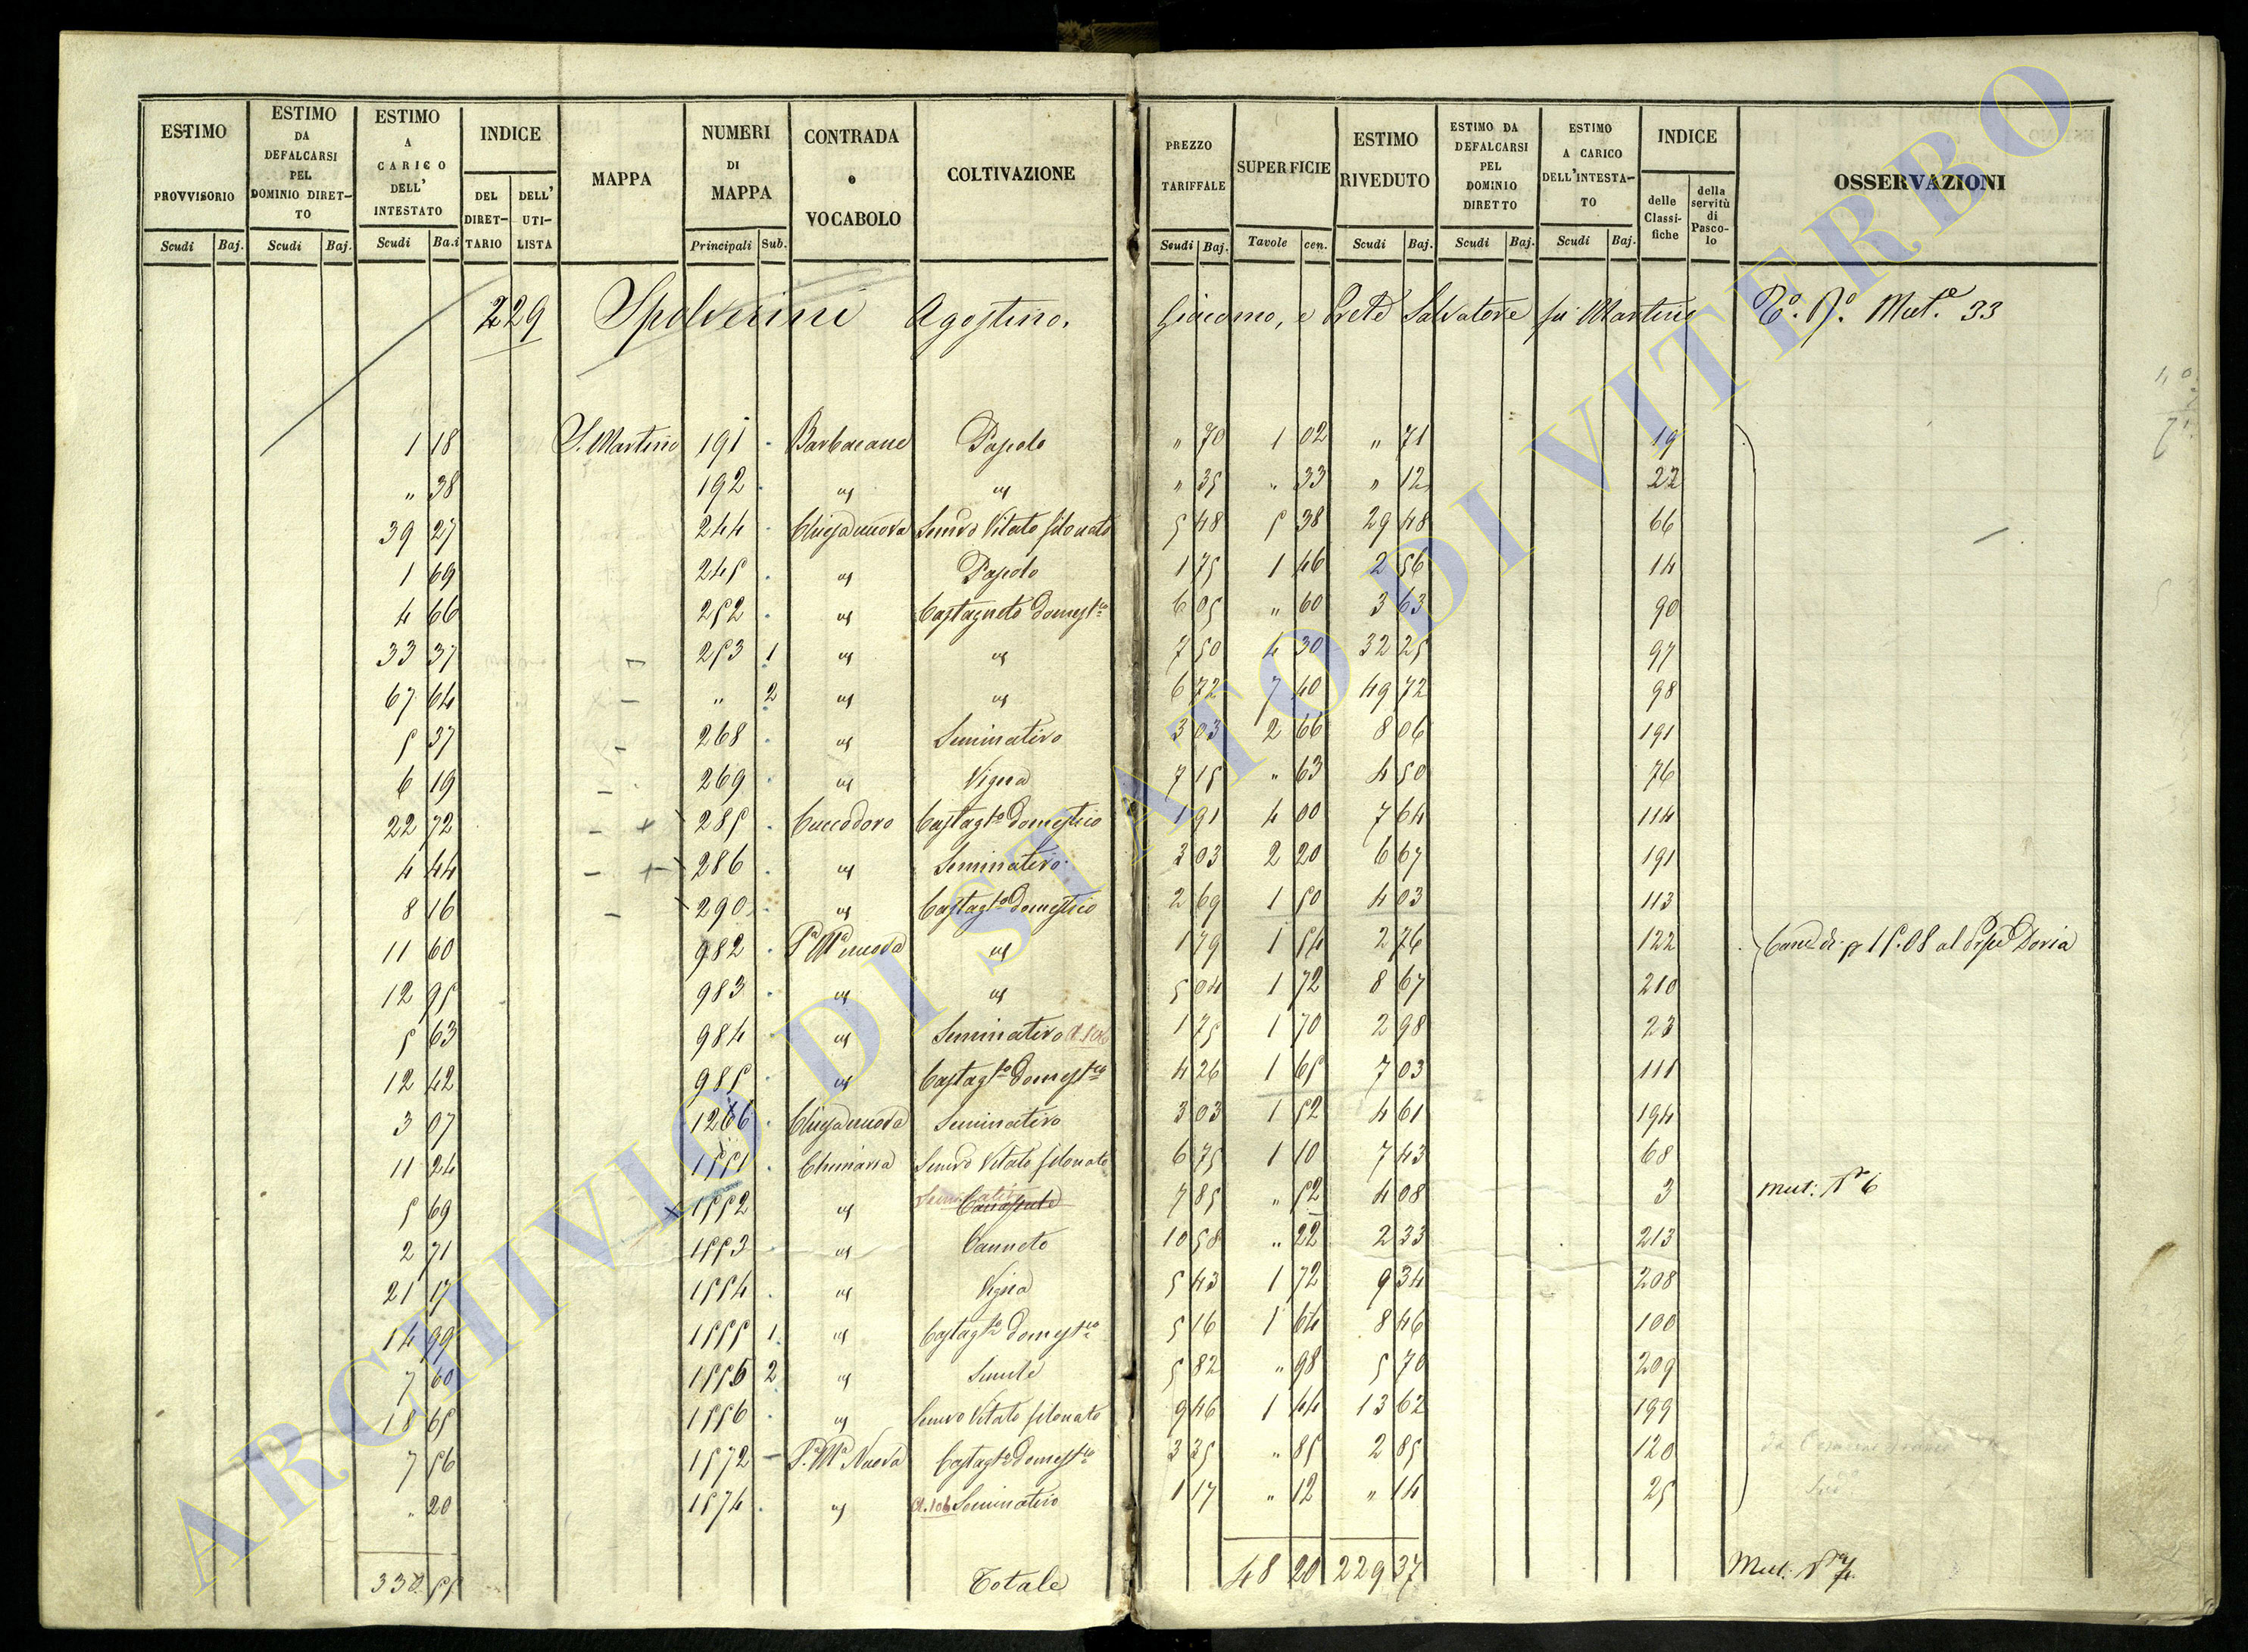 ESTIMO PROVVISORIO Scudi Baj.
ESTIMO DA DEFALCARSI PEL DOMINIO DIRETTO Scudi Baj.
ESTIMO A CARICO DELL' INTESTATO Scudi Ba.i
INDICE DEL DIRETTARIO DELL' UTILISTA
MAPPA
NUMERI DI MAPPA Principali Sub.
CONTRADA e VOCABOLO
COLTIVAZIONE
PREZZO TARIFFALE Scudi Baj.
SUPERFICIE Tavole cen.
ESTIMO RIVEDUTO Scudi Baj.
ESTIMO DA DEFALCARSI PEL DOMINIO DIRETTO Scudi Baj.
ESTIMO A CARICO DELL'INTESTATO Scudi Baj.
INDICE delle Classifiche della servitù di Pascolo
OSSERVAZIONI
229 Spolverini Agostino, Giacomo, e Prete Salvatore fu Martino Mut.e 33
1 18 S. Martino 191 Barbacane Pascolo " 70 1 02 " 71 19
" 38 192 " 35 " 33 " 12 22
39 27 244 Chiesa nuova Semvo Vitato 5 48 5 38 29 48 66
1 69 245 Pascolo 1 75 1 46 2 56 14
4 66 252 Castagneto Domest.co 6 05 " 60 3 63 90
33 37 253 1 7 50 4 30 32 25 97
67 64 " 2 6 72 7 40 49 72 98
5 37 268 Seminativo 3 03 2 66 8 06 191
6 19 269 Vigna 7 15 " 63 4 50 76
22 72 285 Cuccodoro Castagto domestico 1 91 4 00 7 64 114
4 44 286 Seminativo 3 03 2 20 6 67 191
8 16 290 Castagto domestico 2 69 1 50 4 03 113
11 60 982 Sa Ma nuova 1 79 1 54 2 76 122 al Doria
12 95 983 5 04 1 72 8 67 210
5 63 984 Seminativo 1 75 1 70 2 98 23
12 42 985 Castagto Domestco 4 26 1 65 7 03 111
3 07 1266 Chiesa nuova Seminativo 3 03 1 52 4 61 194
11 24 1551 Semvo Vitato 6 75 1 10 7 43 68
5 69 1552 7 85 " 52 4 08 3 Mut: N 6
2 71 1553 Canneto 10 58 " 22 2 33 213
21 17 1554 Vigna 5 43 1 72 9 34 208
14 99 1555 1 Castagto domestco 5 16 1 64 8 46 100
7 60 1555 2 5 82 " 98 5 70 209
18 65 1556 Semvo Vitato 9 46 1 44 13 62 199
7 56 1572 Sa Ma Nuova Castagto Domestco 3 35 " 85 2 85 120
" 20 1574 Seminativo 1 17 " 12 " 14 25
330 55 Totale 48 20 229 37 Mut:
ARCHIVIO DI STATO DI VITERBO